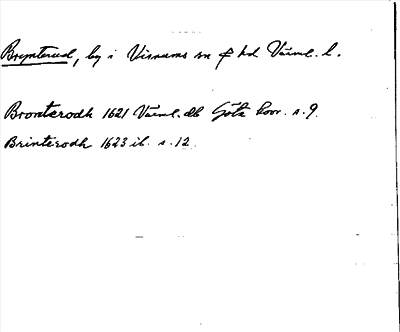 Brynterud, by i Visnums sn o hd Värml. l.
Bronterodh 1621 Värml. db Göta kovr. s. 9.
Brinterodh 1623 ib. s. 12